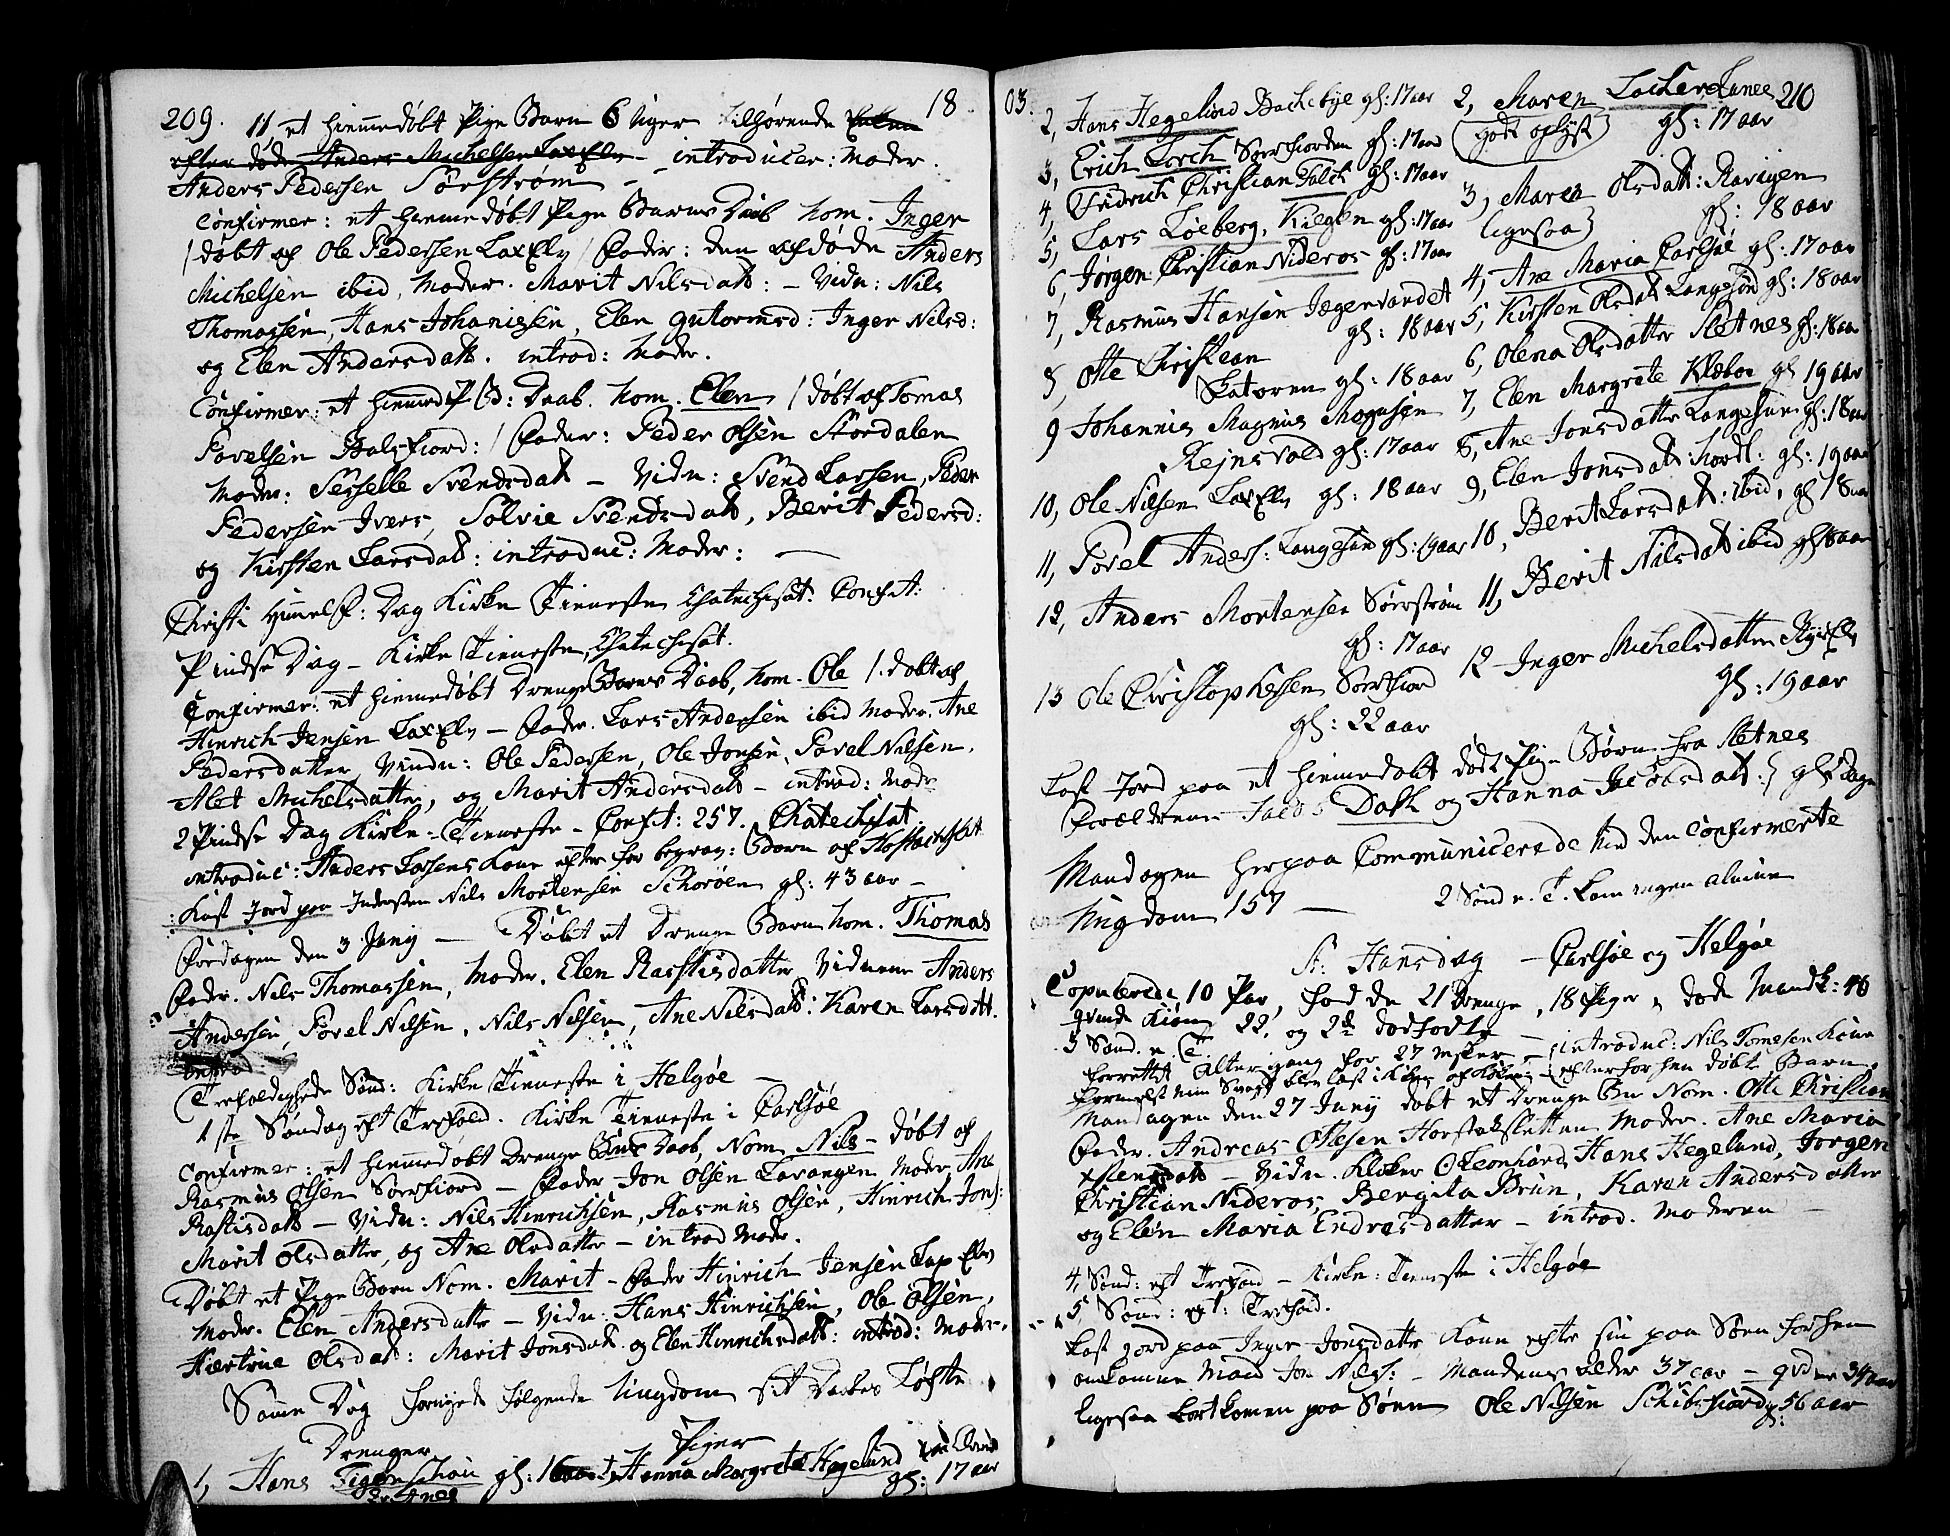 209. 18
11 et hiemmedøbt Pige Barn 6 Uger tilhørende
efter døde Anders Michelsen LaxElv – introducer: Moder.
Anders Pedersen Sørstrøm
Confirmer: et hiemmedøbt Pige Barns Daab nom. Inger
/døbt af Ole Pedersen LaxElv/ Fader: den afdøde Anders
Michelsen ibid, Moder. Marit Nilsdatt: – Vidn: Nils
Thomassen, Hans Johanisen, Elen Gutormsd: Inger Nilsd:
og Elen Andersdatt. introd: Moder.
Confirmer: et hiemmed P B: Daab. nom. Elen /døbt af Tomas
Povelsen Balsfiord:/ Fader: Peder Olsen Stordalen
Moder: Sesselle Svendsdatt – Vidn: Svend Larsen, Peder
Pedersen Ivers, Solvie Svendsdatt, Berit Pedersd:
og Kirsten Larsdatt: introduc: Moder: —
Christi Himmelf: Dag Kirke Tieneste Chatechisat. Confit:
Pindse Dag – Kirke Tieneste, Chatechisat.
Confirmer: et hiemmedøbt Drenge Barns Daab, nom. Ole /: døbt af
Hinrich Jensen LaxElv – Fader. Lars Andersen ibid Moder. Ane
Pedersdatter, Vindn: Ole Pedersen, Ole Jonsen, Povel Nilsen,
Alet Michelsdatter, og Marit Andersdatt – introd: Moder
2 Pindse Dag Kirke-Tieneste – Confit: 257. Chatechisat.
introduc: Anders Larsens Kone efter for begrav: Barn af
: Kast Jord paa Indersten Nils Mortensen Schorøen gl: 43 aar –
Fredagen den 3 Juny — Døbt et Drenge Barn nom. Thomas
Fader. Nils Thomassen, Moder. Elen Rasmisdatter Vidnene Anders
Andersen, Povel Nilsen, Nils Nilsen, Ane Nilsdatt: Karen Larsdatt.
introd:
Trefoldigheds Sønd: Kirke Tieneste i Helgøe —
1ste Søndag eft Trefold. Kirke Tieneste i Carlsøe
Confirmer: et hiemmedøbt Drenge Barns Daab, Nom. Nils – døbt af
Rasmus Olsen Sørfiord – Fader Jon Olsen Lavangen Moder, Ane
Rastisdatt – Vidn: Nils Hinrichsen, Rasmus Olsen, Hinrich Jons:
Marit Olsdatter, og Ane Olsdatter – introd Moder.
Døbt et Pige Barn Nom. Marit – Fader Hinrich Jensen Lax Elv
Moder. Elen Andersdatter – Vidn: Hans Hinrichsen, Ole Olsen,
Olsdatt: Marit Jonsdatt og Elen Hinrichsdatt: introd: Moder.
Samme Dag fornyede følgende Ungdom sit Daabes Løfte
Drenger Piger
1, Hans Figenschou gl: 16 aar 1, Hanna Margreta Hegelund
gl: 17 aar
03. 210
2, Hans Hegelund Bachebye gl: 17 aar 2, Maren
(godt oplyst) gl: 17 aar
3, Erich Lorch Sørfiorden gl: 17 aar
4, Fridrich Christian Falch gl: 17 aar 3, Maren Olsdatt: Ravigen
ligesaa) gl: 18 aar
5, Lars Løeberg, gl: 17 aar
6, Jørgen Christian Nideros gl: 17 aar 4, Ane Maria Carlsøe gl: 17 aar
7, Rasmus Hansen Jægervandet 5, Kirsten Olsdatt Langesund gl: 18 aar
gl: 18 aar
8, Otte Christean 6, Olena Olsdatter Sletnes gl: 18 aar
Skatøren gl: 18 aar 7, Elen Margrete Klæboe gl 19 aar
9 Johannis Magnus Mogensen 8, Ane Jonsdatter Langesund gl: 18 aar
Rejnsvold gl: 17 aar
10, Ole Nilsen LaxElv gl: 18 aar 9, Elen Jonsdatt: gl: 19 aar
11, Povel Anders: Langesund gl: 19 aar 10, Berit Larsdatt: ibid, gl 18 aar
12, Anders Mortensen Sørstrøm 11, Berit Nilsdatt ibid gl 18 aar
gl: 17 aar
13 Ole Christophersen Sørfiord 12 Inger Michelsdatter
gl: 22 aar gl: 19 aar
Kast Jord paa et hiemmedøbt dødt Pige Børn fra Sletnes
Forældrene Jacob Dass og Hanna Jacobsdatt:
Mandagen herpaa Communicerede den confirmerte
Ungdom 157 — 2 Sønd e. T. kom ingen almue
St: Hansdag – Carlsøe og Helgøe
Copulerede 10 Par, fødde 21 Drenge, 18 Piger, døde Mandk: 40
qvinde Kiøn 22. og 2de dødfødte —
3 Sønd. e. T. introduc: Nils Tomesen Kone
forrettet Altergang for 27 — efter for hendes døbt Barn
Mandagen den 27 Juny døbt et Drenge Bn Nom. Otte Christian
Fader. Andreas Ottesen Moder. Ane Maria
– Vidn. Klokker O. Leonhard, Hans Hegelund, Jørgen
Christian Nideros, Bergita Brun, Karen Andersdatter
og Elen Maria Endresdatter – introd. Moderen —
4, Sønd: eft Trefold – Kirke: Tieneste i Helgøe
5, Sønd: eft: Trefold.
Kast Jord paa Inger Jonsdatter Kone efter sin paa Søen for hen
omkomne Mand Jon Nils: – Mandens alder 37 aar – 34 aar
ligesaa bortkomen paa Søen Ole Nilsen Schibsfiord gl: 56 aar